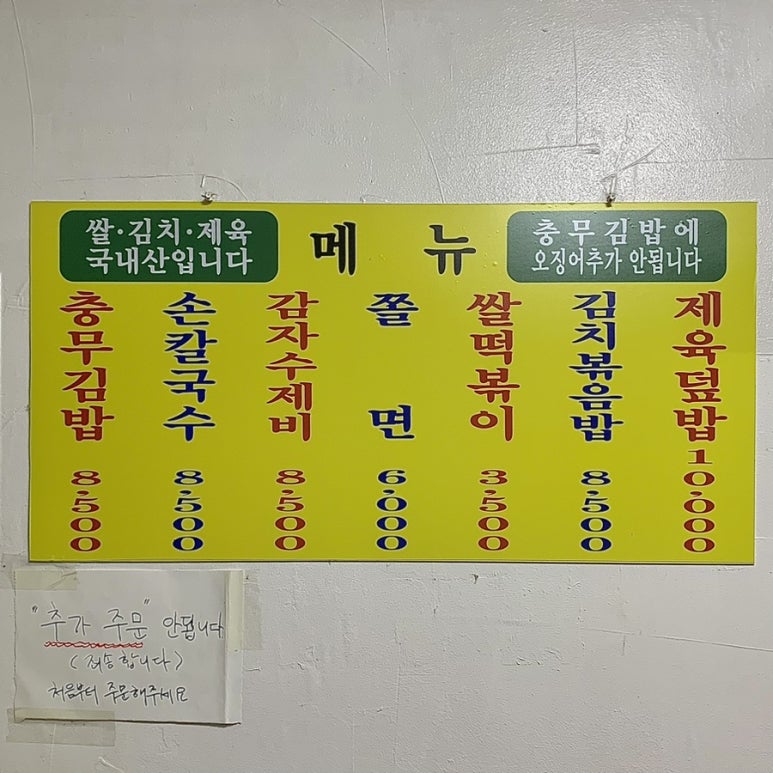 쌀·김치·제육
국내산입니다
메뉴
충무김밥에
오징어추가 안됩니다
충무김밥 8.500
손칼국수 8.500
감자수제비 8.500
쫄면 6.000
쌀떡볶이 3.500
김치볶음밥 8.500
제육덮밥 10.000
"추가 주문" 안됩니다
(죄송합니다)
처음부터 주문해주세요